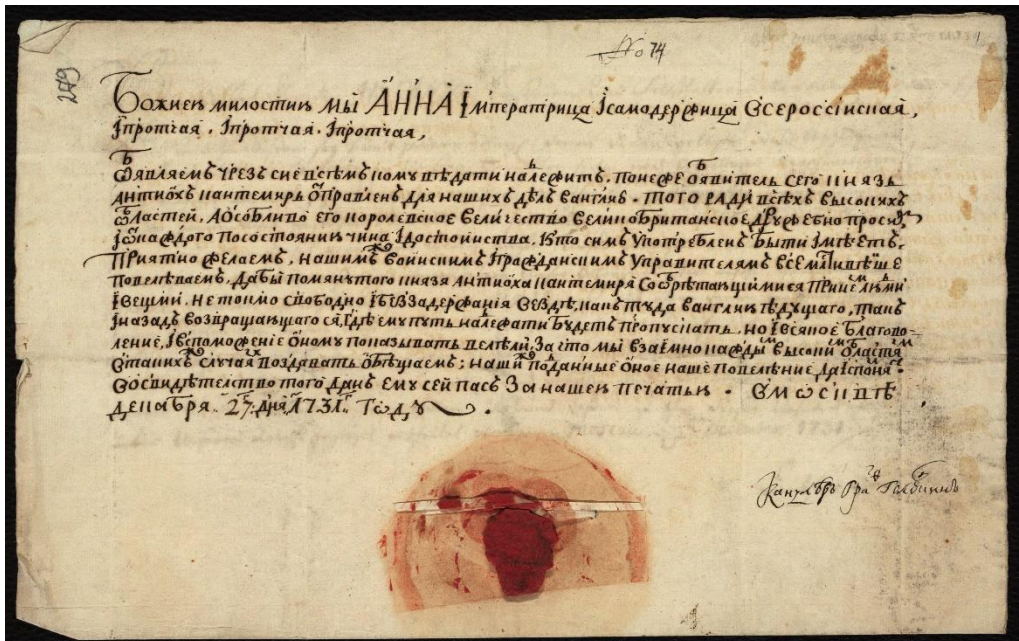 No 74
249
Божиею милостию мы АННА Императрица Iсамодержица Всероссiиская,
Iпротчая. Iпротчая. Iпротчая,
Обявляемъ чрезъ сие всѣмъ кому вѣдати належитъ. понеже обявитель сего князь
Антиохъ кантемиръ отправленъ для нашихъ дѣлъ ванглию. того ради всѣхъ высокихъ
областей, Аособливо его королевское величество великобританское дружебно просимъ
Iкаждого посостоянию чина Iдостоинства, кто симъ употребленъ быти Iмѣетъ,
Приятно желаемъ, нашимъже воинскимъ Iгражданскимъ управителямъ всемлтивѣише
повелѣваемъ, дабы помянутого князя антиоха кантемиря собрѣтающимися принемъ людми
Iвещми, не токмо свободно Iбеззадержания вездѣ, какъ туда ванглию ѣдущаго, такъ
Iназадъ возвращающагося, гдѣ ему путь належати будетъ пропускать, но Iвсякое благово-
ление, Iвспоможение оному показывать велѣли, за что мы взаимно каждымъ высокимъ областямъ
втакихже случаяхъ воздавать обѣщаемъ; нашиже подданные оное наше повеление да Iсполнятъ.
Восвидѣтелство того данъ ему сей пасъ за нашею печатью. В москвѣ
декабря 27 дня 1731 году.
канцлеръ графъ Головкинъ